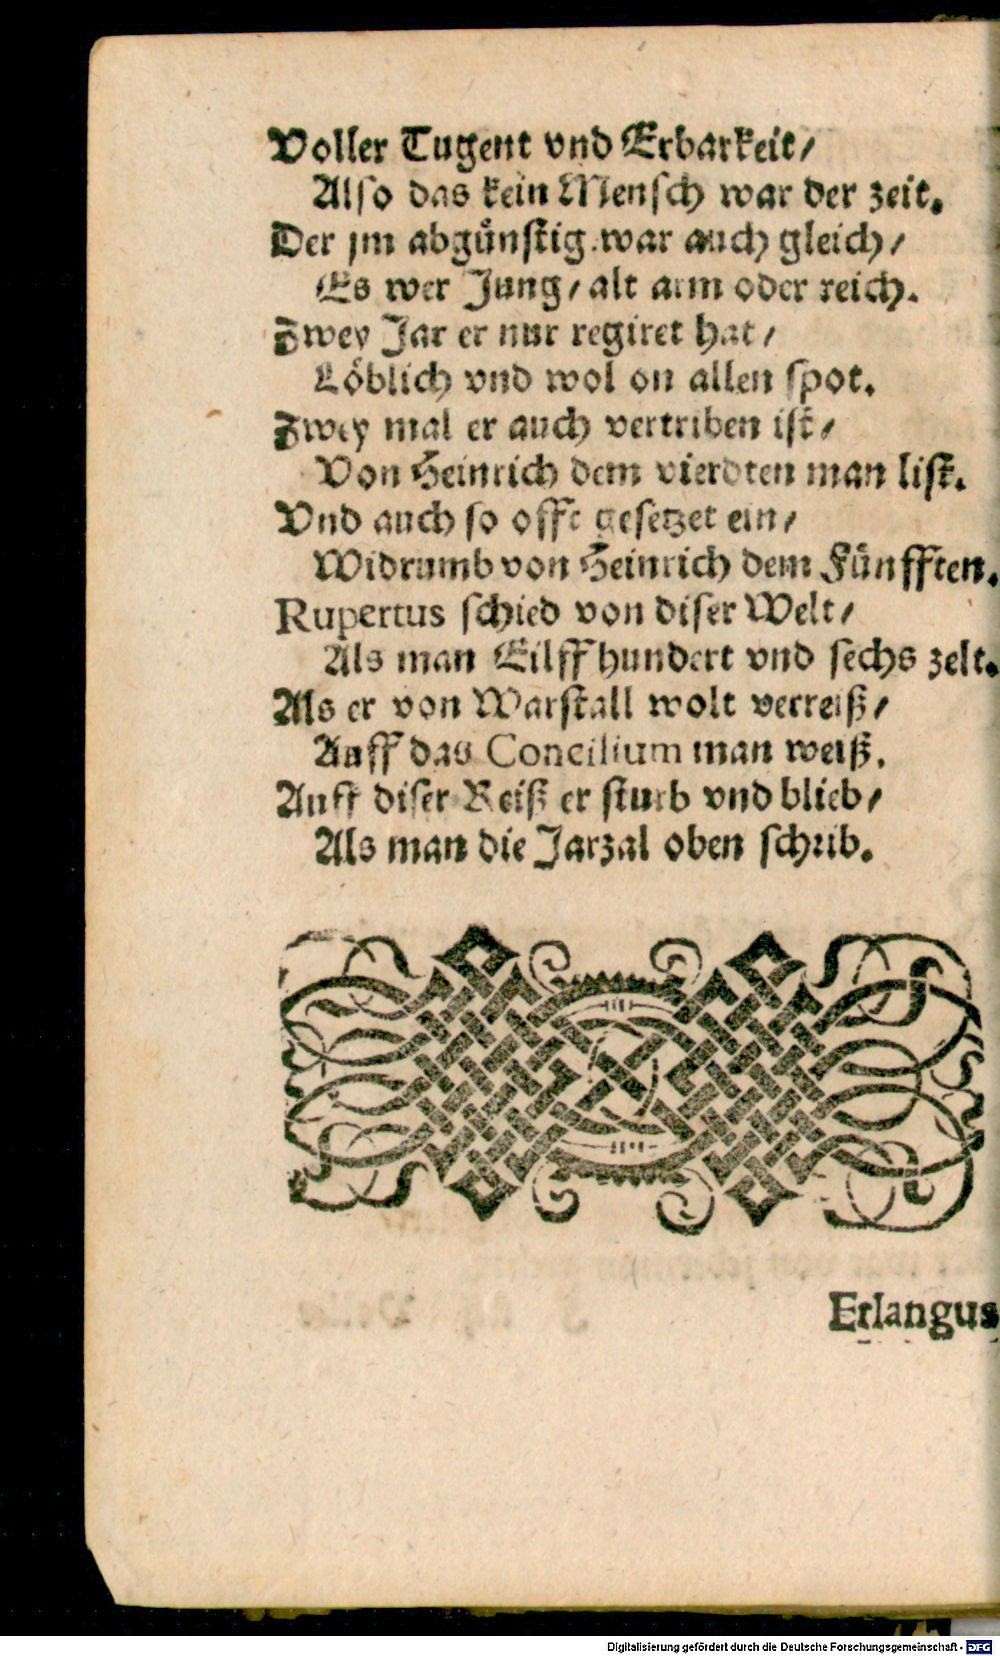 Voller Tugent vnd Erbarkeit/
Also das kein Mensch war der zeit.
Der jm abgünstig war auch gleich/
Es wer Jung/ alt arm oder reich.
Zwey Jar er nur regiret hat/
Löblich vnd wol on allen spot.
Zwey mal er auch vertriben ist/
Von Heinrich dem vierdten man list.
Vnd auch so offt gesetzet ein/
Widrumb von Heinrich dem Fünfften.
Rupertus schied von diser Welt/
Als man Eilff hundert vnd sechs zelt.
Als er von Warstall wolt verreiß/
Auff das Concilium man weiß.
Auff diser Reiß er sturb vnd blieb/
Als man die Jarzal oben schrib.
Erlangus
Digitalisierung gefördert durch die Deutsche Forschungsgemeinschaft - DFG